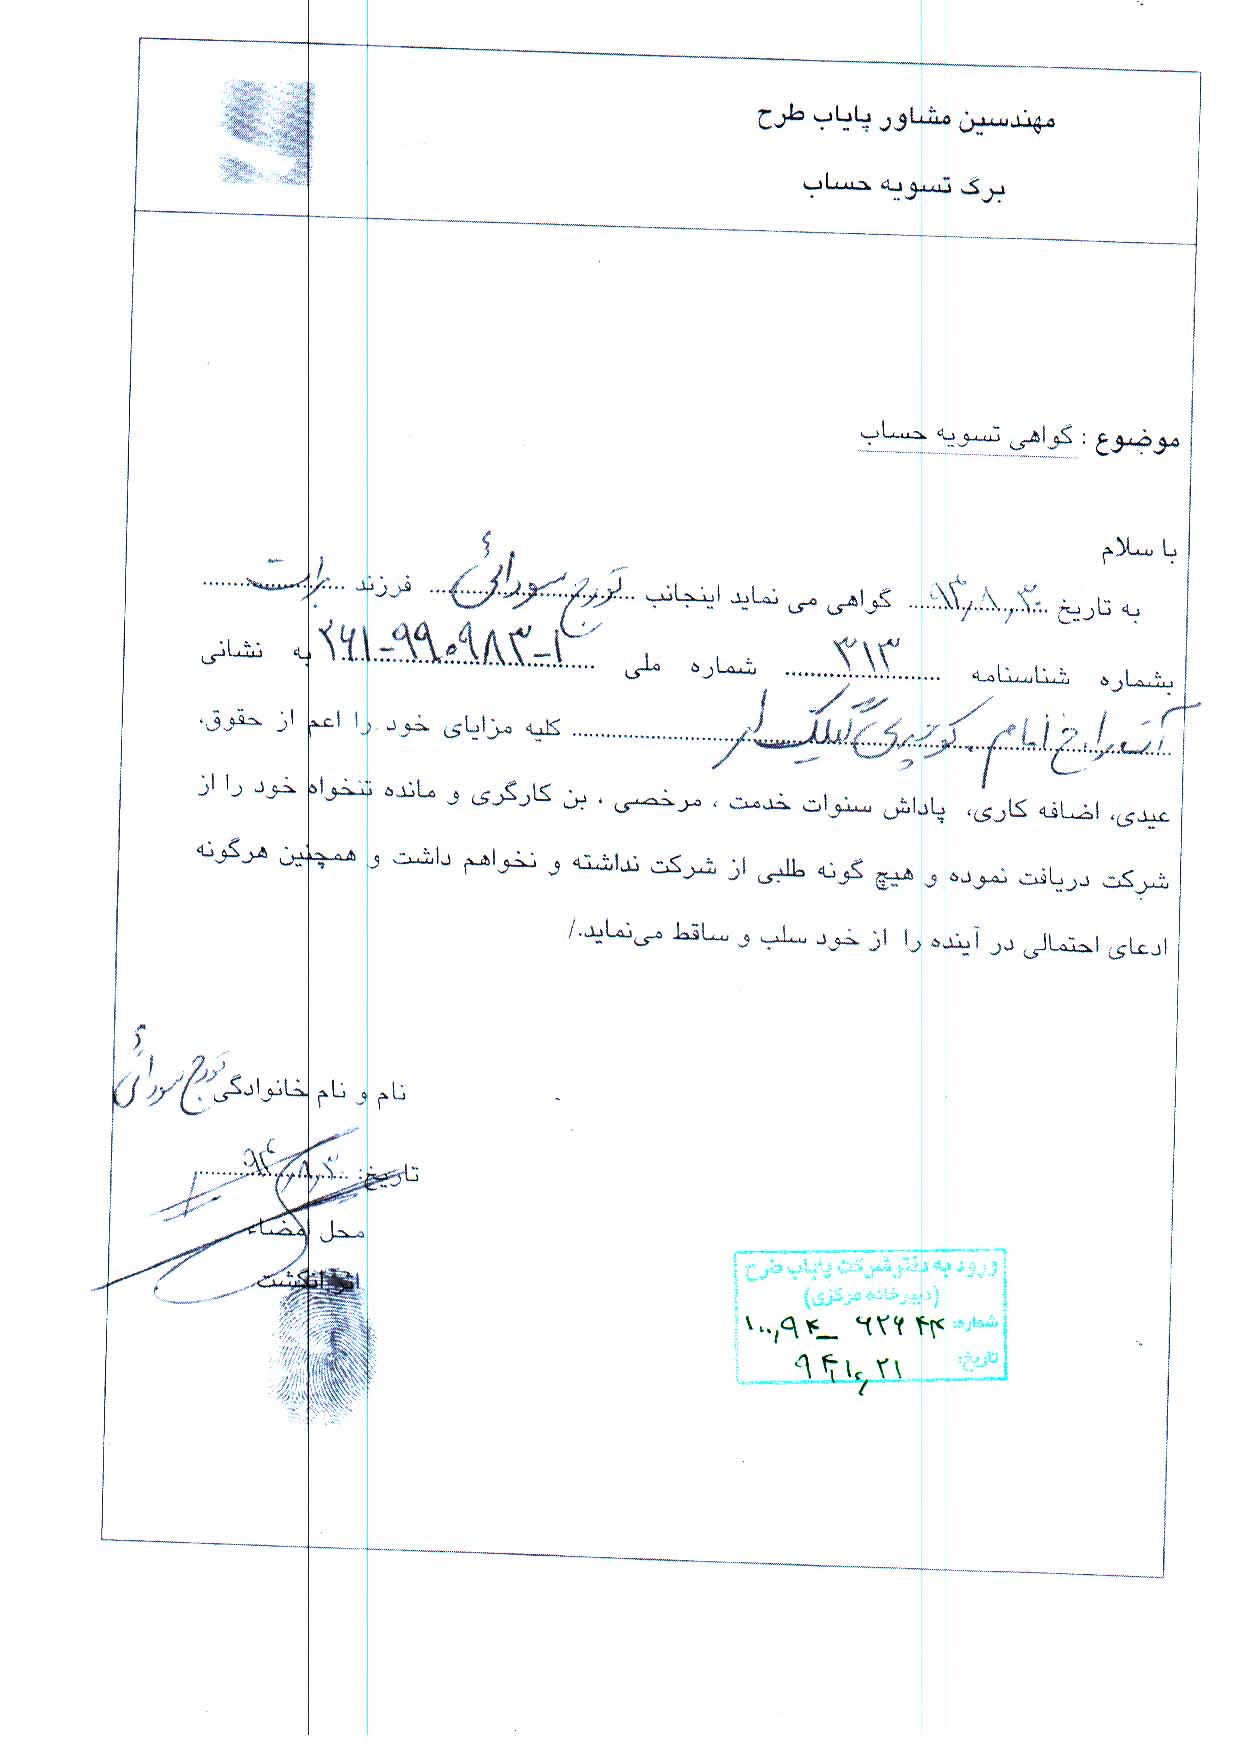 مهندسین مشاور پایاب طرح
برگ تسویه حساب
موضوع : گواهی تسویه حساب
با سلام
به تاریخ ۹۳,۸,۳۰ گواهی می نماید اینجانب تورج سورائی فرزند برات
بشماره شناسنامه ۳۱۳ شماره ملی ۲۶۱-۹۹۰۹۸۳-۱ به نشانی
امام کلیه مزایای خود را اعم از حقوق،
عیدی، اضافه کاری، پاداش سنوات خدمت ، مرخصی ، بن کارگری و مانده تنخواه خود را از
شرکت دریافت نموده و هیچ گونه طلبی از شرکت نداشته و نخواهم داشت و همچنین هرگونه
ادعای احتمالی در آینده را از خود سلب و ساقط می‌نماید./
نام و نام خانوادگی تورج سورائی
تاریخ:
محل امضاء
اثر انگشت
ورود به دفتر شرکت پایاب طرح
(دبیرخانه مرکزی)
شماره:
تاریخ: